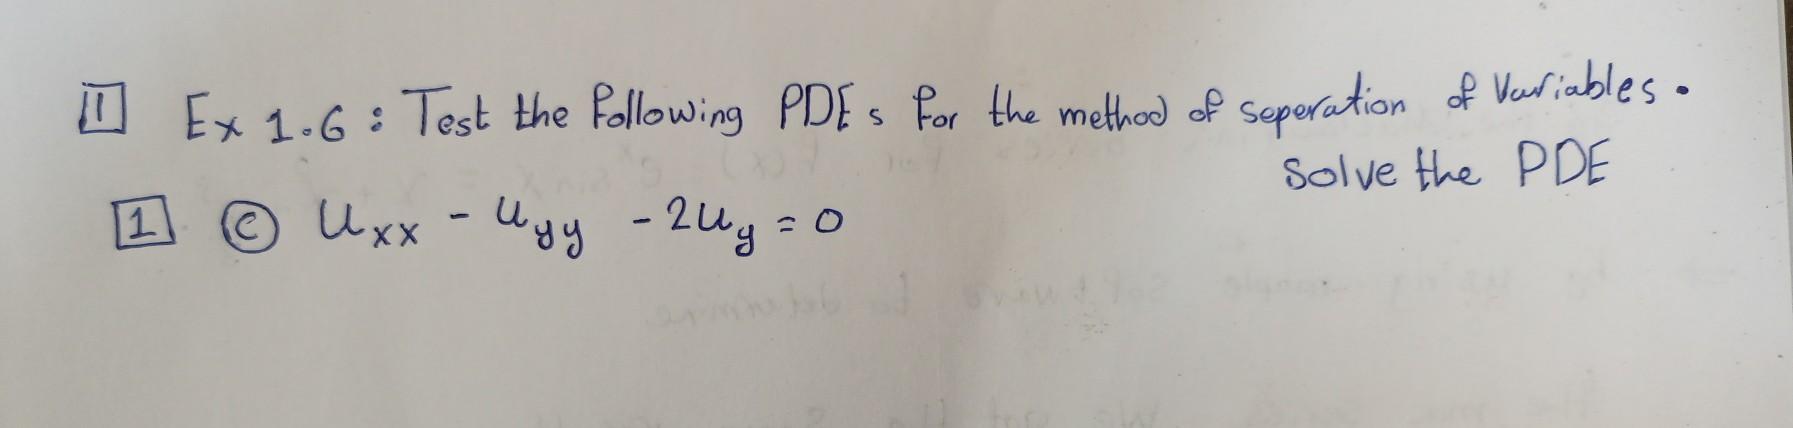 1 Ex 1.6 : Test the following PDEs for the method of seperation of variables.
Solve the PDE
1 c Uxx - Uyy - 2Uy = 0